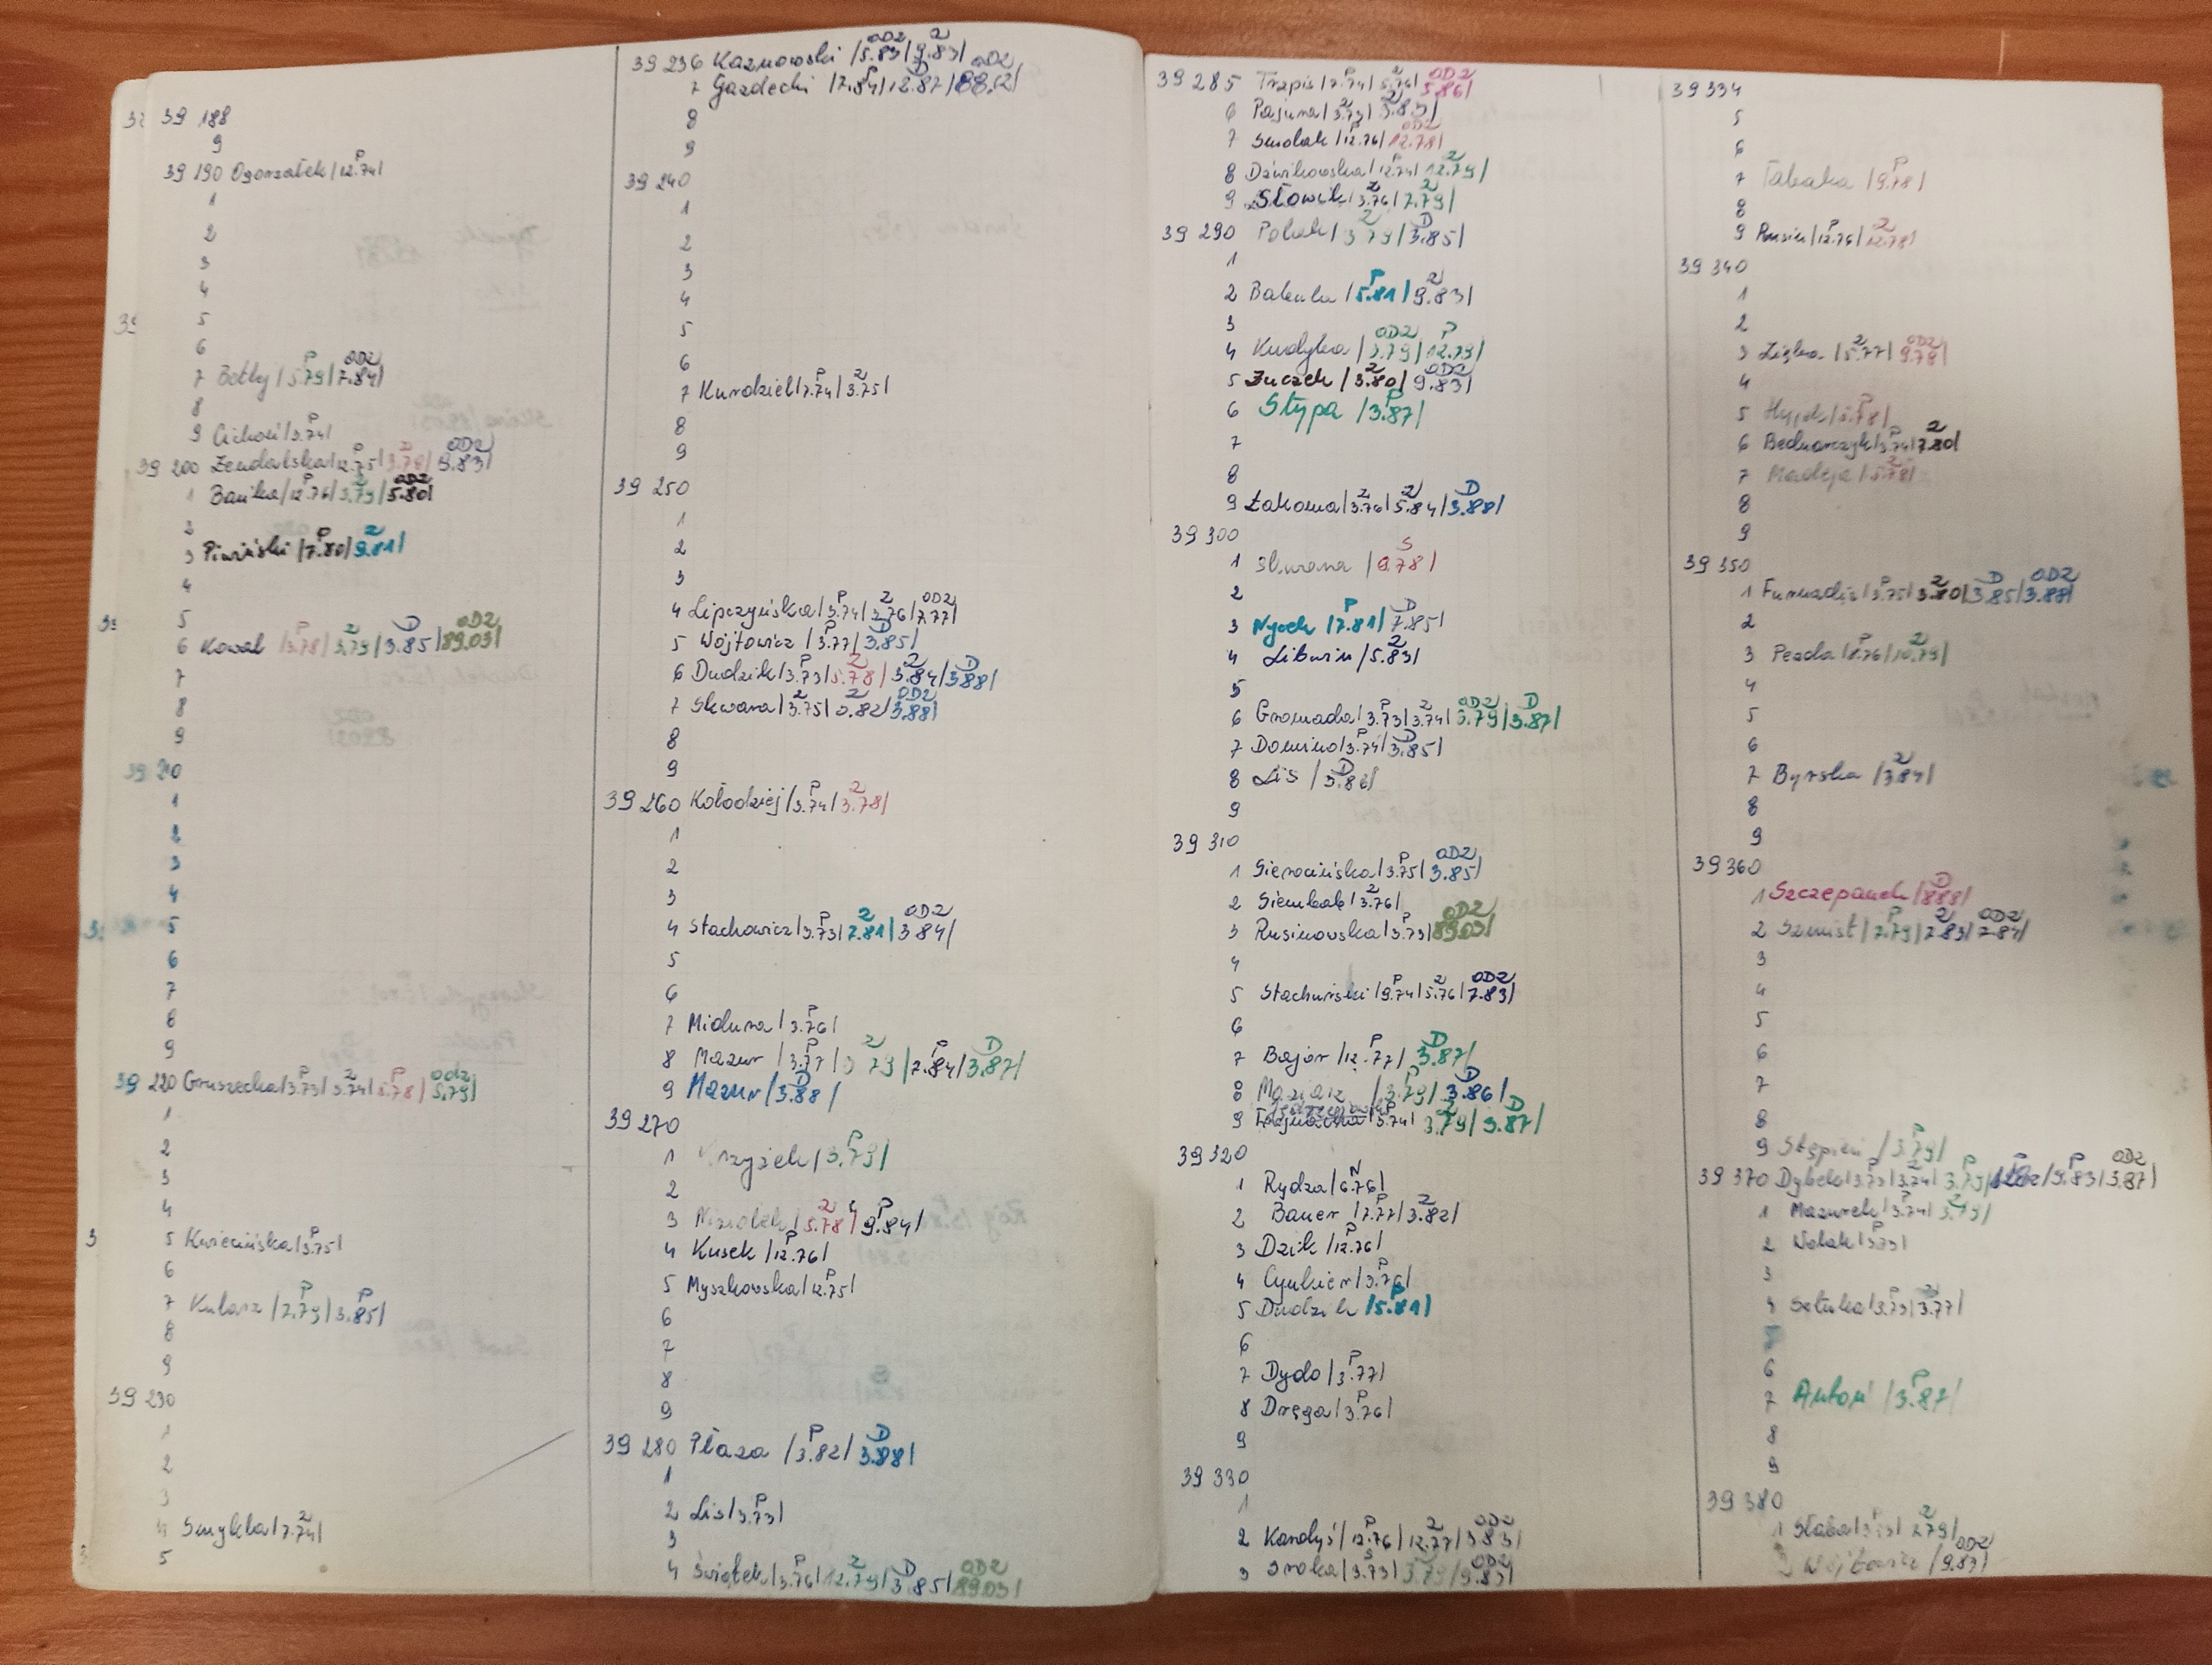 39 188
9
39 190 Ogorzałek |12.74| P
1
2
3
4
5
6
7 Betlej |5.79| P |7.84| ODZ
8
9 Cichoń |3.74| P
39 200 Zendalska |12.75| P |3.78| D |9.83| ODZ
1 Banika |12.76| P |3.79| Z |5.80| ODZ
2
3 Piwiński |7.80| P |9.81| Z
4
5
6 Kowal |3.78| P |3.79| Z |3.85| D |89.03| ODZ
7
8
9
39 210
1
2
3
4
5
6
7
8
9
39 220 Gruszecka |3.73| P |3.74| Z |5.78| P |5.79| ODZ
1
2
3
4
5 Kwiecińska |3.75| P
6
7 Kularz |7.79| P |3.85| P
8
9
39 230
1
2
3
4 Smykla |7.74| Z
5
39 236 Kaznowski |5.83| ODZ |9.83| Z
7 Gazdecki |7.84| P |12.87| D |88.12| ODZ
8
9
39 240
1
2
3
4
5
6
7 Kurdziel |7.74| P |3.75| Z
8
9
39 250
1
2
3
4 Lipczyńska |3.74| P |3.76| Z |7.77| ODZ
5 Wójtowicz |3.77| P |3.85| D
6 Dudzik |3.73| P |5.78| Z |3.84| Z |3.88| D
7 Skwara |3.75| Z |3.82| Z |3.88| ODZ
8
9
39 260 Kołodziej |3.74| P |3.78| Z
1
2
3
4 Stachowicz |3.73| P |7.81| Z |3.84| ODZ
5
6
7 Midura |3.76| P
8 Mazur |3.77| P |3.79| Z |7.84| P |3.87| D
9 Mazur |3.88| D
39 270
1 Krzysiek |3.79| P
2
3 |5.78| Z |9.84| P
4 Kusek |12.76| P
5 Myszkowska |12.75| P
6
7
8
9
39 280 Płaza |3.82| P |3.88| D
1
2 Lis |3.73| P
3
4 Świątek |3.76| P |12.79| Z |3.85| D |89.03| ODZ
39 285 Trzpis |7.74| P |5.76| Z |5.86| ODZ
6 |3.79| Z |3.83| Z
7 Smolak |12.76| P |12.78| ODZ
8 Dźwikowska |12.74| P |12.79| Z
9 Słowik |3.76| Z |7.79| Z
39 290 Polak |3.79| Z |3.85| D
1
2 Bakula |5.81| P |9.83| Z
3
4 Kurdyka |3.79| ODZ |12.79| P
5 Żuczek |3.80| Z |9.83| ODZ
6 Stypa |3.87| P
7
8
9 Łakoma |3.76| Z |5.84| Z |3.88| D
39 300
1 Skwara |9.78| S
2
3 Nycek |7.81| P |7.85| D
4 Liburn |5.83| Z
5
6 Gromada |3.73| P |3.74| Z |3.79| ODZ |3.87| D
7 Domino |3.74| P |3.85| D
8 Lis |3.86| D
9
39 310
1 Sierocińska |3.75| P |3.85| ODZ
2 Siembab |3.76| Z
3 Rusinowska |3.73| P |89.03| ODZ
4
5 Stachurski |9.74| P |5.76| Z |7.83| ODZ
6
7 Bajor |12.77| P |3.87| D
8 Maziarz |3.79| P |3.86| D
9 |3.74| |3.79| Z |3.87| D
39 320
1 Rydza |6.76| N
2 Bauer |7.77| P |3.82| Z
3 Dzik |12.76| P
4 Cynkier |3.76| P
5 Dudzik |5.81| P
6
7 Dydo |3.77| P
8 Dręga |3.76| P
9
39 330
1
2 Kandyś |12.76| P |12.77| Z |3.83| ODZ
3 Sroka |3.73| S |3.79| |9.83| ODZ
39 334
5
6
7 Tabaka |9.78| P
8
9 Rusin |12.76| P |12.78| Z
39 340
1
2
3 Ziętka |5.77| Z |9.78| ODZ
4
5 |5.78| P
6 Bednarczyk |3.74| P |7.80| Z
7 Madeja |5.78| Z
8
9
39 350
1 |3.75| P |3.80| Z |3.85| D |3.88| ODZ
2
3 Pezda |8.76| P |10.79| Z
4
5
6
7 Byrska |3.84| Z
8
9
39 360
1 Szczepanek |8.88| D
2 Szmist |7.79| P |7.83| Z |7.84| ODZ
3
4
5
6
7
8
9 Stępień |3.79| P
39 370 Dybel |3.73| P |3.74| Z |3.79| P |9.83| P |3.87| ODZ
1 Mazurek |3.74| P |3.79| Z
2 Wolak |3.73| P
3
4 Sztuka |3.73| P |3.77| Z
5
6
7 Antoń |3.87| P
8
9
39 380
1 Słaba |3.73| |7.79| Z
2 Wójtowicz |9.83| ODZ